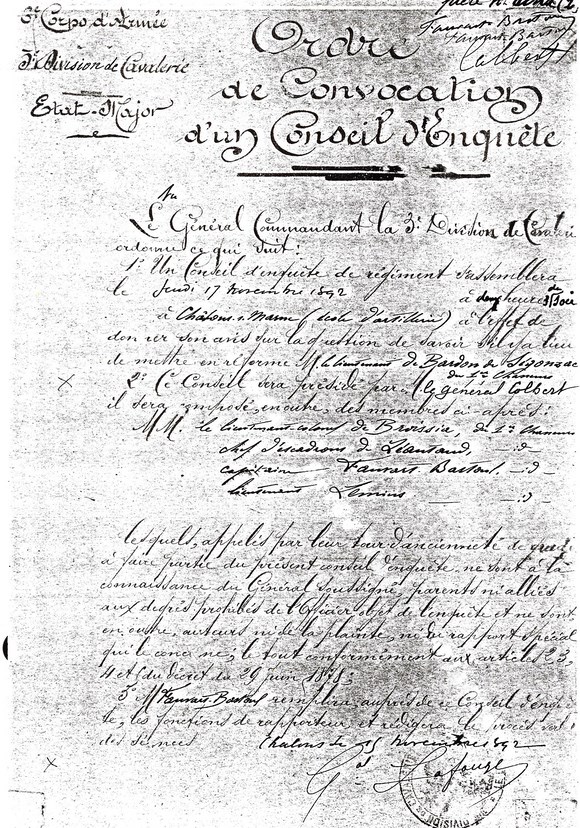 6e Corps d'Armée
3e Division de Cavalerie
Etat-Major
Faurart-Bastoul
Faurart-Bastoul
Colbert
Ordre
de Convocation
d'un Conseil d'Enquête
Le Général Commandant la 3e Division de Cavalerie
ordonne ce qui suit :
1° Un Conseil d'enquête de régiment s'assemblera
le Jeudi 17 novembre 1892 à deux heures du soir
à Châlons s. Marne (école d'artillerie) à l'effet de
donner son avis sur la question de savoir s'il y a lieu
de mettre en réforme M. le lieutenant de Bardon de Sigonzac
du 5e Chasseurs
2° Ce Conseil sera présidé par M. le général Colbert
il sera composé, en outre, des membres ci-après :
MM. le lieutenant-colonel de Broissia, du 5e Chasseurs
chef d'escadrons de Léautaud, - id -
capitaine Faurart-Bastoul, - id -
lieutenant - id -
lesquels, appelés par leur tour d'ancienneté de grade
à faire partie du présent conseil d'enquête ne sont à la
connaissance du Général soussigné, parents ni alliés
aux degrés prohibés de l'Officier objet de l'enquête et ne sont,
en outre, auteurs ni de la plainte, ni du rapport spécial
qui le concerne ; le tout conformément aux articles 2, 3,
4 et du décret du 29 juin 1878 ;
3° M. Faurart-Bastoul remplira, auprès de ce Conseil d'enquê-
te, les fonctions de rapporteur et rédigera le procès verbal
des séances.
Châlons le 15 novembre 1892
Gal Lafouge